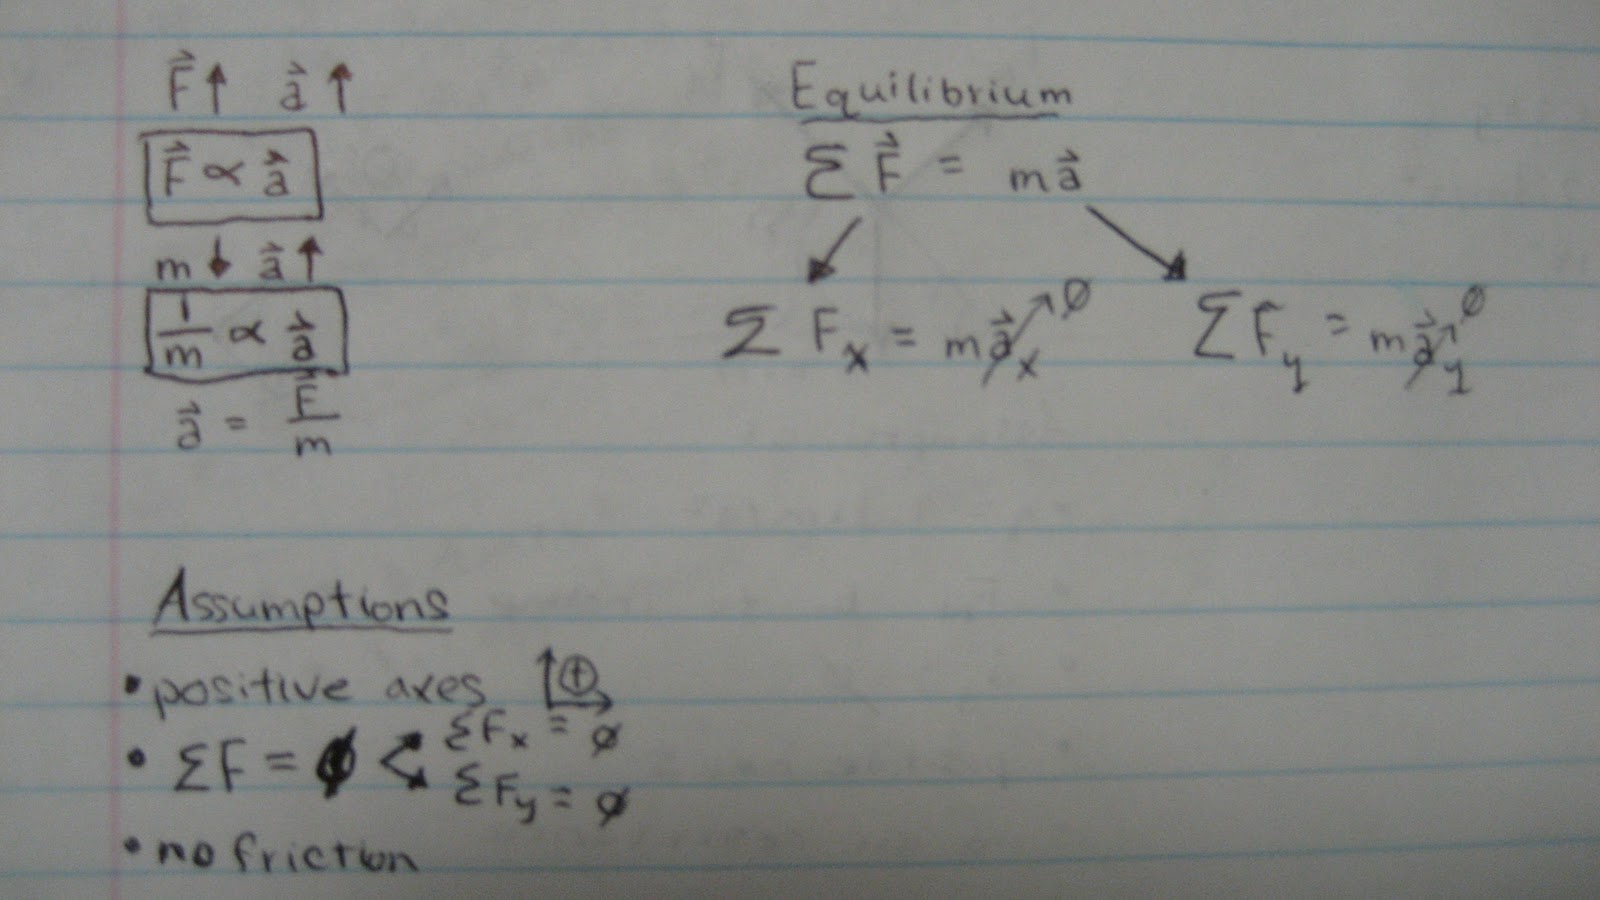 F⃗ ↑ a⃗ ↑
F⃗ ∝ a⃗
m ↓ a⃗ ↑
1/m ∝ a⃗
a⃗ = F⃗/m
Equilibrium
Σ F⃗ = ma⃗
Σ Fₓ = ma⃗ₓ ↗ ∅
Σ F_y = ma⃗_y ↗ ∅
Assumptions
• positive axes ⊕
• ΣF = ∅
ΣFₓ = ∅
ΣF_y = ∅
• no friction